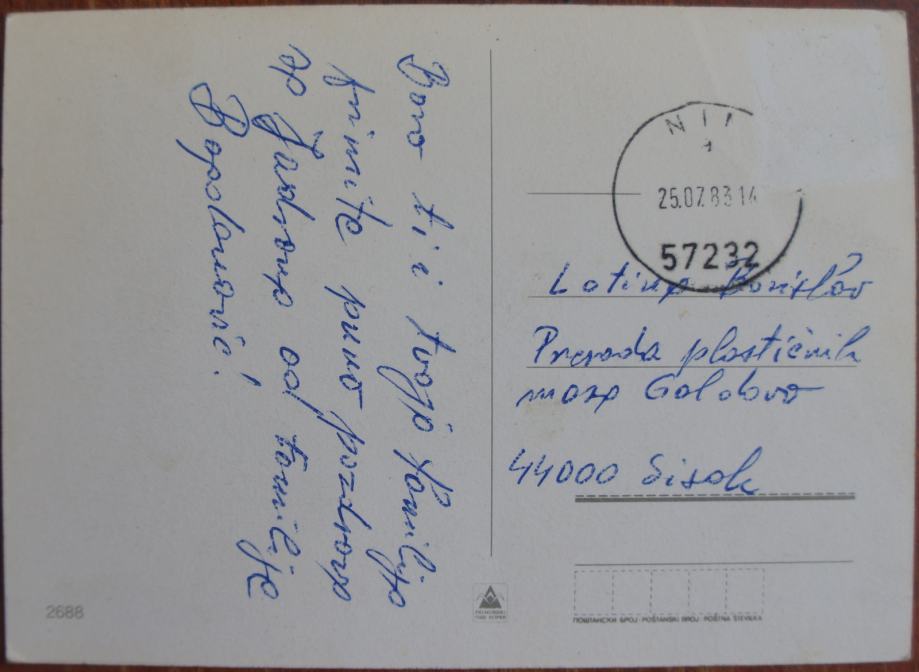 Boro ti i tvoja familija
primite puno pozdrava
iz Zadra od familije
Bogdanović.
25.07.83 14
57232
Borislav
Prerada plastičnih
masa Galdovo
44000 Sisak
ПОШТАНСКИ БРОЈ · POŠTANSKI BROJ · POŠTNA ŠTEVILKA
2688